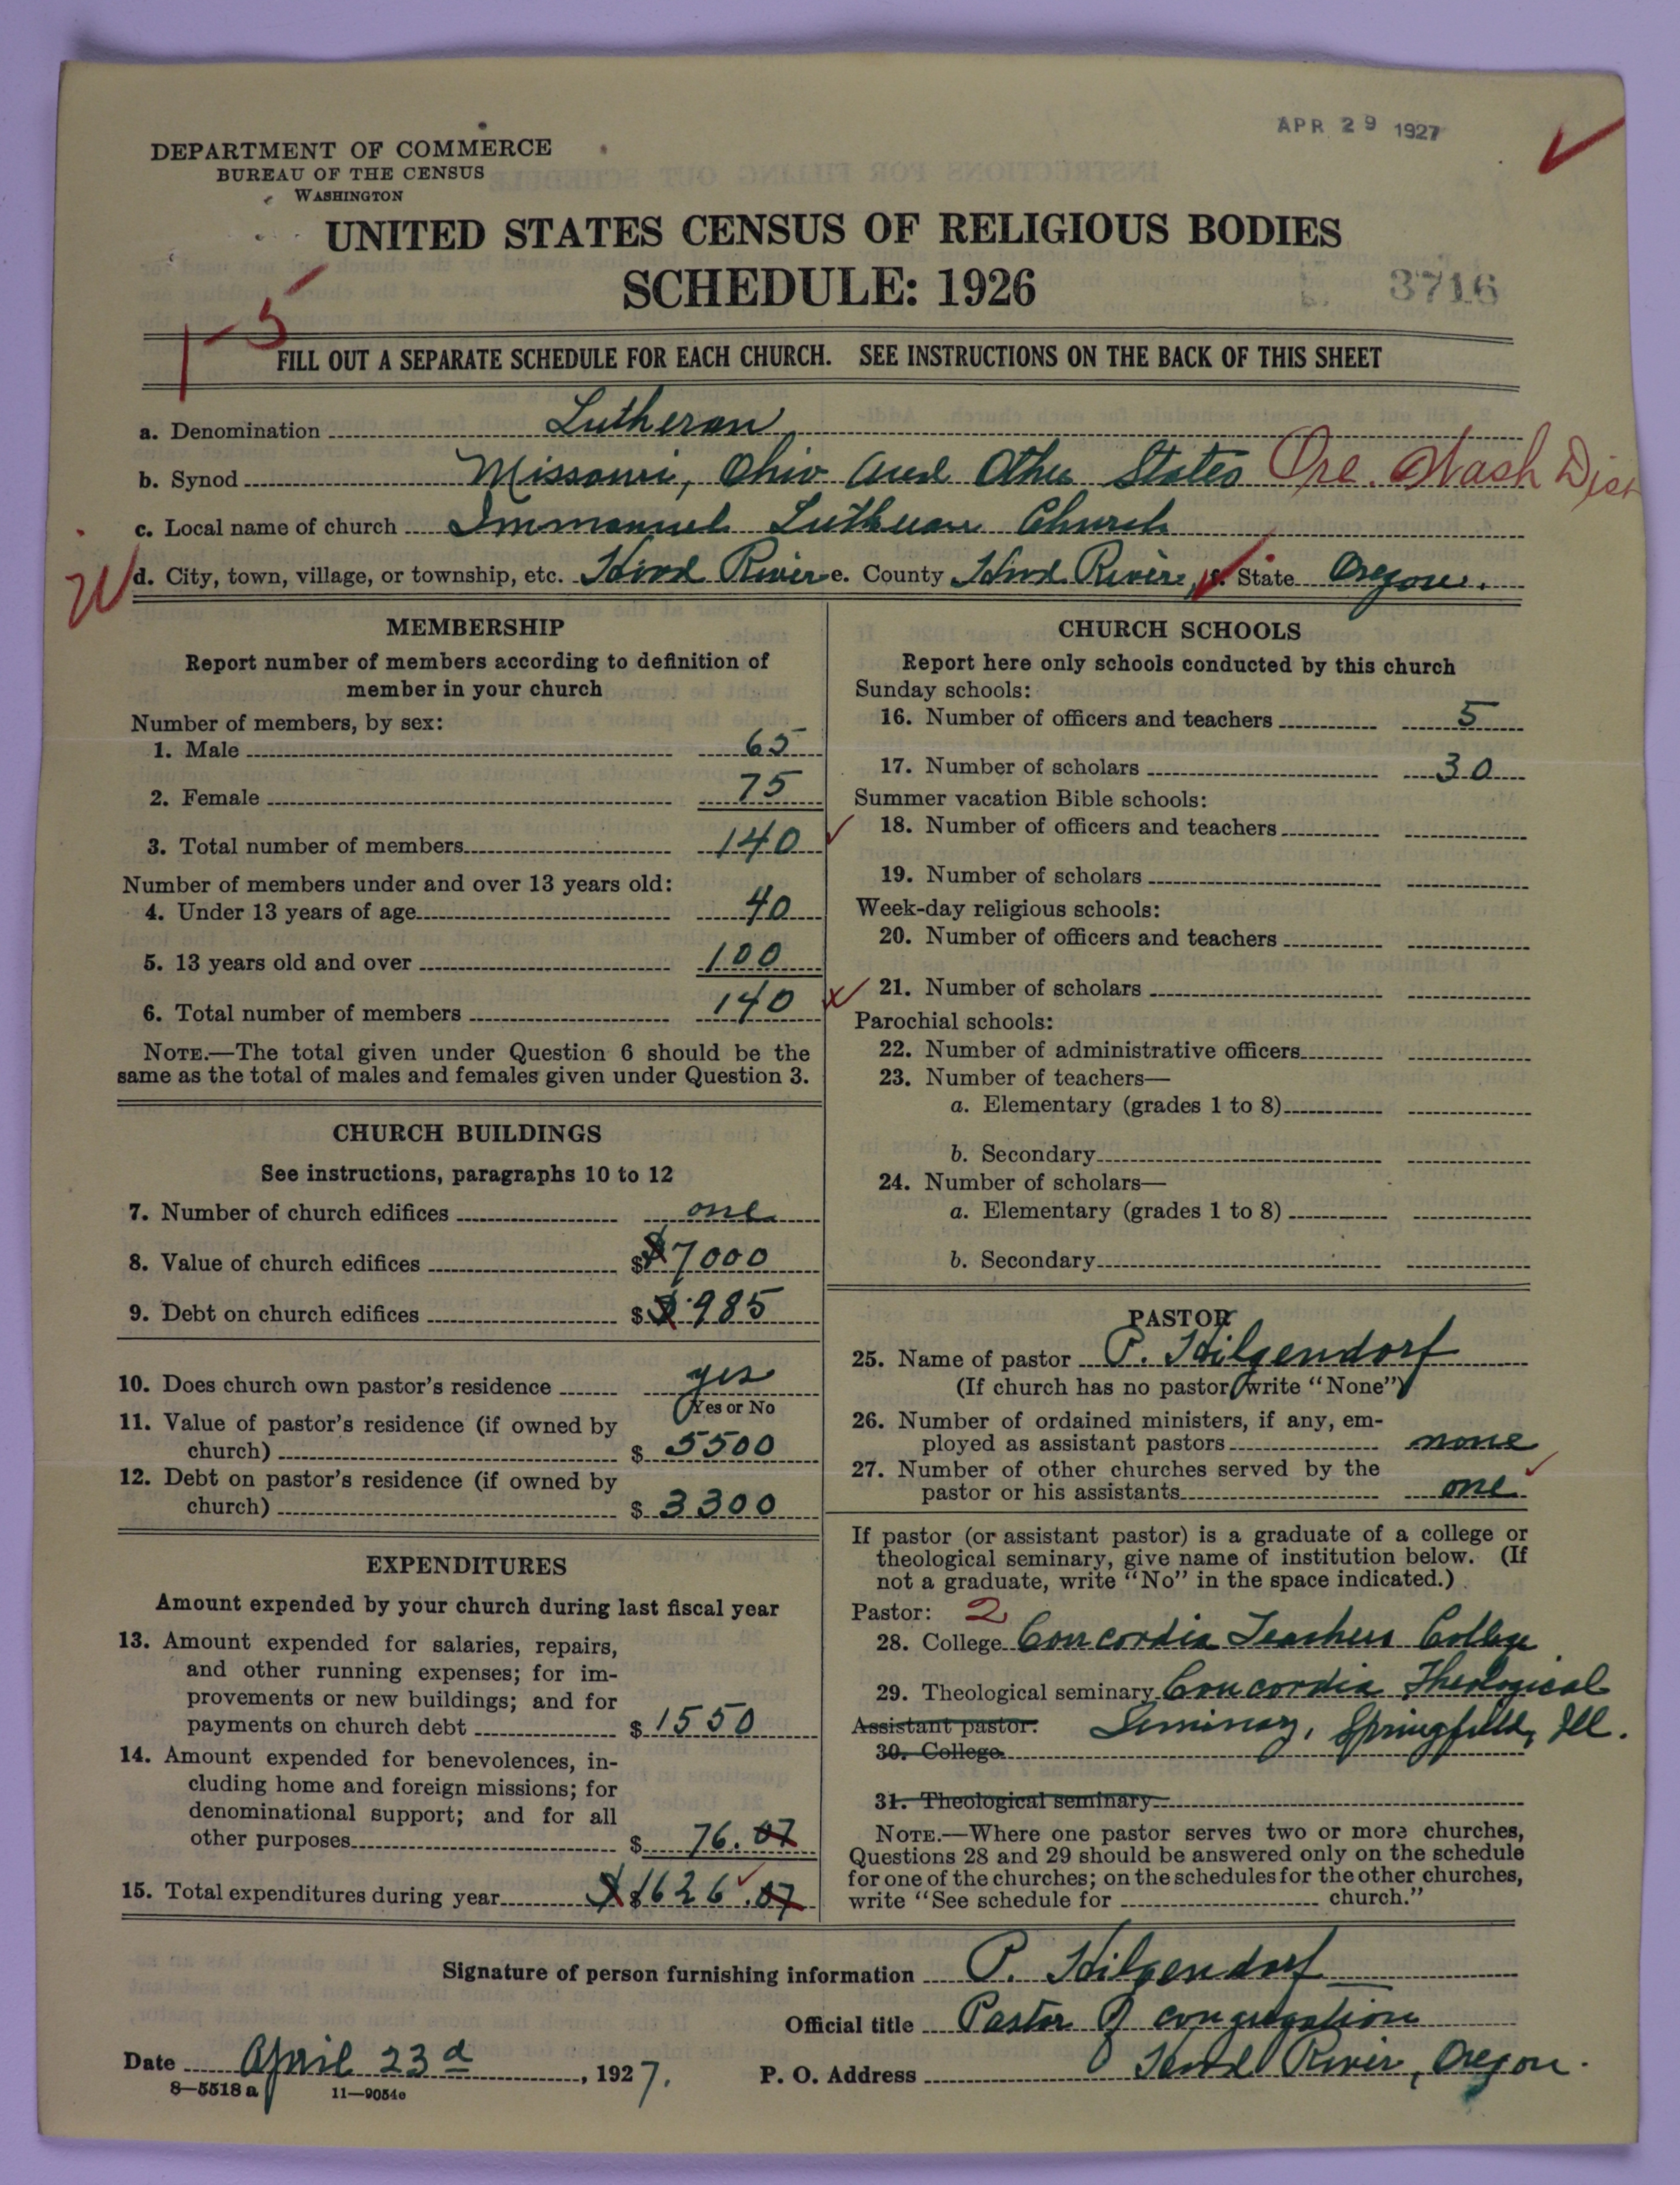 APR 29 1927
DEPARTMENT OF COMMERCE
BUREAU OF THE CENSUS
WASHINGTON
UNITED STATES CENSUS OF RELIGIOUS BODIES
SCHEDULE: 1926
3716
1-5
FILL OUT A SEPARATE SCHEDULE FOR EACH CHURCH. SEE INSTRUCTIONS ON THE BACK OF THIS SHEET
a. Denomination Lutheran
b. Synod Missouri, Ohio and Other States Ore. Wash Dist
c. Local name of church Immanuel Lutheran Church
d. City, town, village, or township, etc. Hood River e. County Hood River, f. State Oregon.
MEMBERSHIP
Report number of members according to definition of
member in your church
Number of members, by sex:
1. Male 65
2. Female 75
3. Total number of members 140
Number of members under and over 13 years old:
4. Under 13 years of age 40
5. 13 years old and over 100
6. Total number of members 140
NOTE.—The total given under Question 6 should be the
same as the total of males and females given under Question 3.
CHURCH BUILDINGS
See instructions, paragraphs 10 to 12
7. Number of church edifices one
8. Value of church edifices $ $7000
9. Debt on church edifices $ $985
10. Does church own pastor's residence yes
Yes or No
11. Value of pastor's residence (if owned by
church) $ 5500
12. Debt on pastor's residence (if owned by
church) $ 3300
EXPENDITURES
Amount expended by your church during last fiscal year
13. Amount expended for salaries, repairs,
and other running expenses; for im-
provements or new buildings; and for
payments on church debt $ 1550
14. Amount expended for benevolences, in-
cluding home and foreign missions; for
denominational support; and for all
other purposes $ 76.07
15. Total expenditures during year $ $1626.07
CHURCH SCHOOLS
Report here only schools conducted by this church
Sunday schools:
16. Number of officers and teachers 5
17. Number of scholars 30
Summer vacation Bible schools:
18. Number of officers and teachers
19. Number of scholars
Week-day religious schools:
20. Number of officers and teachers
21. Number of scholars
Parochial schools:
22. Number of administrative officers
23. Number of teachers—
a. Elementary (grades 1 to 8)
b. Secondary
24. Number of scholars—
a. Elementary (grades 1 to 8)
b. Secondary
PASTOR
25. Name of pastor P. Hilgendorf
(If church has no pastor write "None")
26. Number of ordained ministers, if any, em-
ployed as assistant pastors none
27. Number of other churches served by the
pastor or his assistants one
If pastor (or assistant pastor) is a graduate of a college or
theological seminary, give name of institution below. (If
not a graduate, write "No" in the space indicated.)
Pastor: 2
28. College Concordia Teachers College
29. Theological seminary Concordia Theological
Assistant pastor: Seminary, Springfield, Ill.
30. College
31. Theological seminary
NOTE.—Where one pastor serves two or more churches,
Questions 28 and 29 should be answered only on the schedule
for one of the churches; on the schedules for the other churches,
write "See schedule for church."
Signature of person furnishing information P. Hilgendorf
Official title Pastor of congregation
Date April 23d, 1927. P. O. Address Hood River, Oregon.
8—5518 a 11—9054e